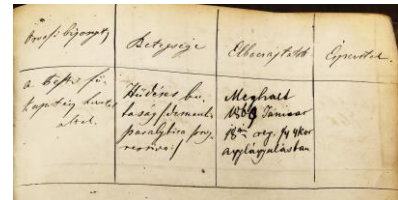 Orvosi bizonyít.
Betegsége
Elbocsájtatott
a Pesti fő
kapitány
által.
Hüdéses bu-
taság (dementia
paralytica prog-
ressiva)
Meghalt
1869 Január
18án reg. 1/4 4kor
agylágyulásban